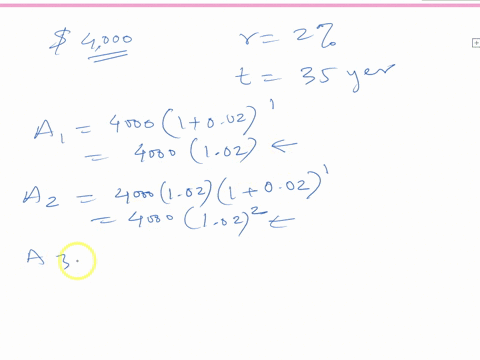 $ 4,000
r = 2%
t = 35 yer
A1 = 4000 (1+0.02)^1
= 4000 (1.02) ←
A2 = 4000 (1.02) (1+0.02)^1
= 4000 (1.02)^2 ←
A 3.